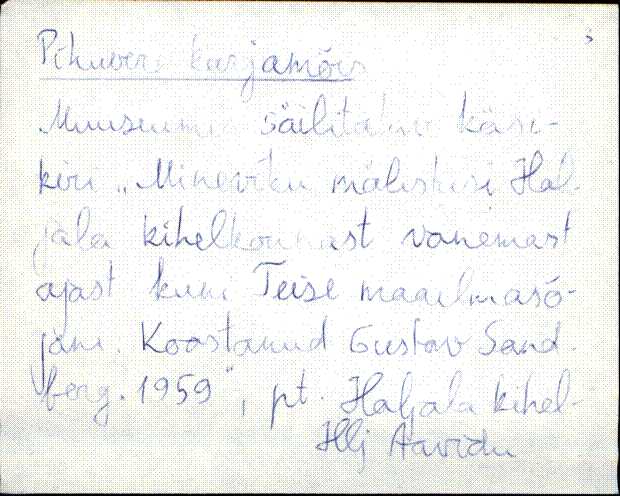 3
Pihuvere karjamõis
Muuseumis säilitatav käsi-
kiri „Mineviku mälestusi Hal-
jala kihelkonnast vanemast
ajast kuni Teise maailmasõ-
jani. Koostanud Gustav Sand-
berg. 1959", pt. Haljala kihel-
Hlj Aavidu